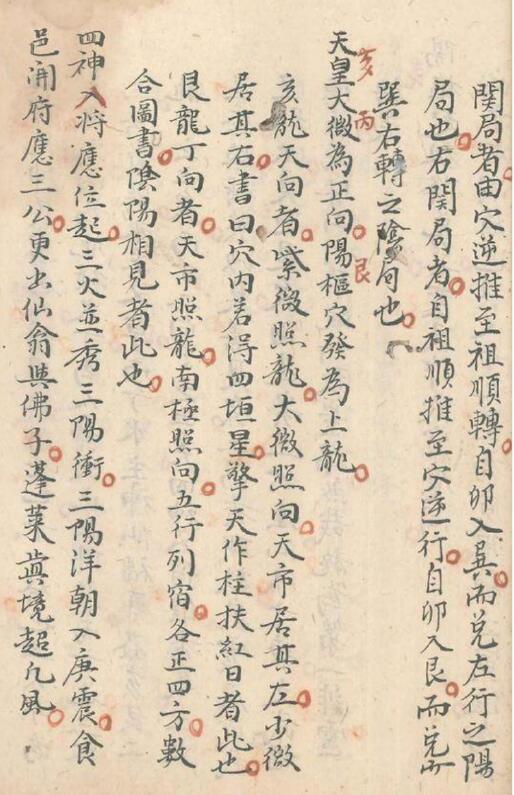 関局者由穴逆推至祖順轉自卯入巽而兌左行之陽
局也右関局者自祖順推至穴逆行自卯入艮而兌
巽右轉之陰局也
天皇大微為正向陽樞穴發為上龍
亥
丙
艮
亥龍天向者紫微照龍大微照向天市居其左少微
居其右書曰穴内若得四垣星擎天作柱扶紅日者此也
艮龍丁向者天市照龍南極照向五行列宿各正四方數
合圖書陰陽相見者此也
四神入將應位起三火並秀三陽衝三陽洋朝入庚震食
邑開府應三公更出仙翁與佛子蓬萊眞境超凡風